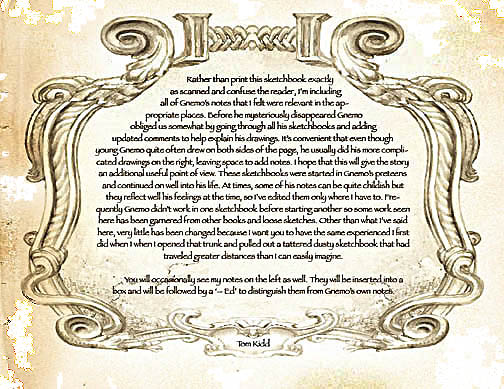 Rather than print this sketchbook exactly
as scanned and confuse the reader, I'm including
all of Gnemo's notes that I felt were relevant in the ap-
propriate places. Before he mysteriously disappeared Gnemo
obliged us somewhat by going through all his sketchbooks and adding
updated comments to help explain his drawings. It's convenient that even though
young Gnemo quite often drew on both sides of the page, he usually did his more compli-
cated drawings on the right, leaving space to add notes. I hope that this will give the story
an additional useful point of view. These sketchbooks were started in Gnemo's preteens
and continued on well into his life. At times, some of his notes can be quite childish but
they reflect well his feelings at the time, so I've edited them only where I have to. Fre-
quently Gnemo didn't work in one sketchbook before starting another so some work seen
here has been garnered from other books and loose sketches. Other than what I've said
here, very little has been changed because I want you to have the same experienced I first
did when I when I opened that trunk and pulled out a tattered dusty sketchbook that had
traveled greater distances than I can easily imagine.
You will occasionally see my notes on the left as well. They will be inserted into a
box and will be followed by a '– Ed' to distinguish them from Gnemo's own notes.
Tom Kidd